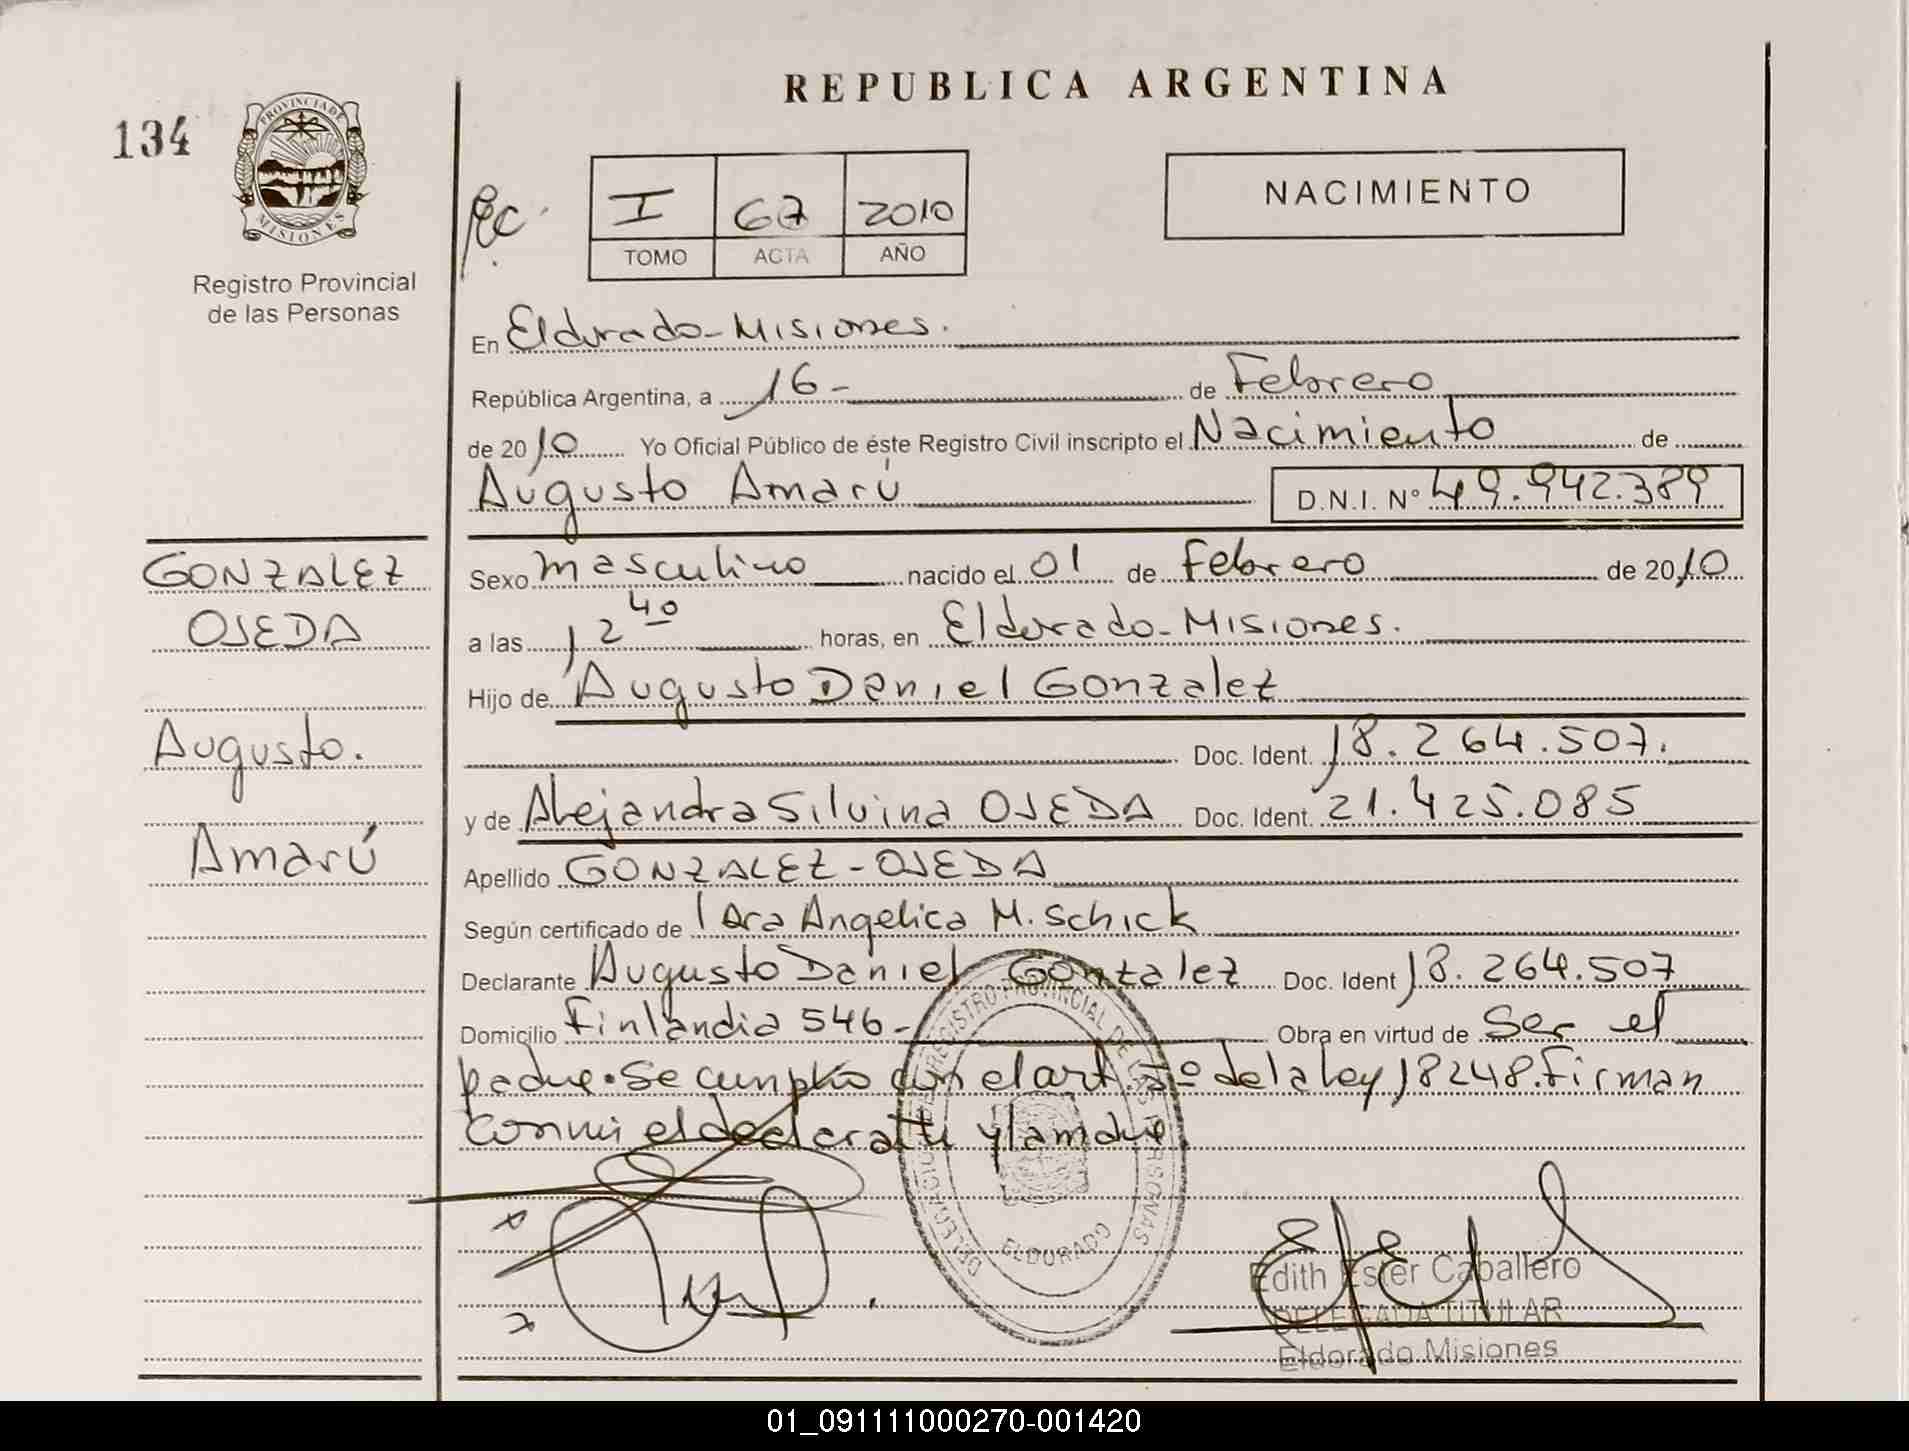 REPUBLICA ARGENTINA
134
PROVINCIA DE
MISIONES
Registro Provincial
de las Personas
I 67 2010
TOMO ACTA AÑO
NACIMIENTO
En Eldorado-Misiones.
República Argentina, a 16- de Febrero
de 2010 Yo Oficial Público de éste Registro Civil inscripto el Nacimiento de
Augusto Amarú D.N.I. Nº 49.942.389
GONZALEZ
OJEDA
Augusto.
Amarú
Sexo masculino nacido el 01 de Febrero de 2010
a las 12 40 horas, en Eldorado-Misiones.
Hijo de Augusto Daniel Gonzalez
Doc. Ident. 18.264.507.
y de Alejandra Silvina OJEDA Doc. Ident. 21.425.085
Apellido GONZALEZ-OJEDA
Según certificado de Angelica M. Schick
Declarante Augusto Daniel Gonzalez Doc. Ident 18.264.507
Domicilio Finlandia 546- Obra en virtud de Ser el
padre. Se cumplió con el art. 5º de la ley 18248. Firman
conmi el declarante y la madre
DELEGACION DEL REGISTRO PROVINCIAL DE LAS PERSONAS
ELDORADO
Edith Ester Caballero
DELEGADA TITULAR
Eldorado Misiones
01_091111000270-001420